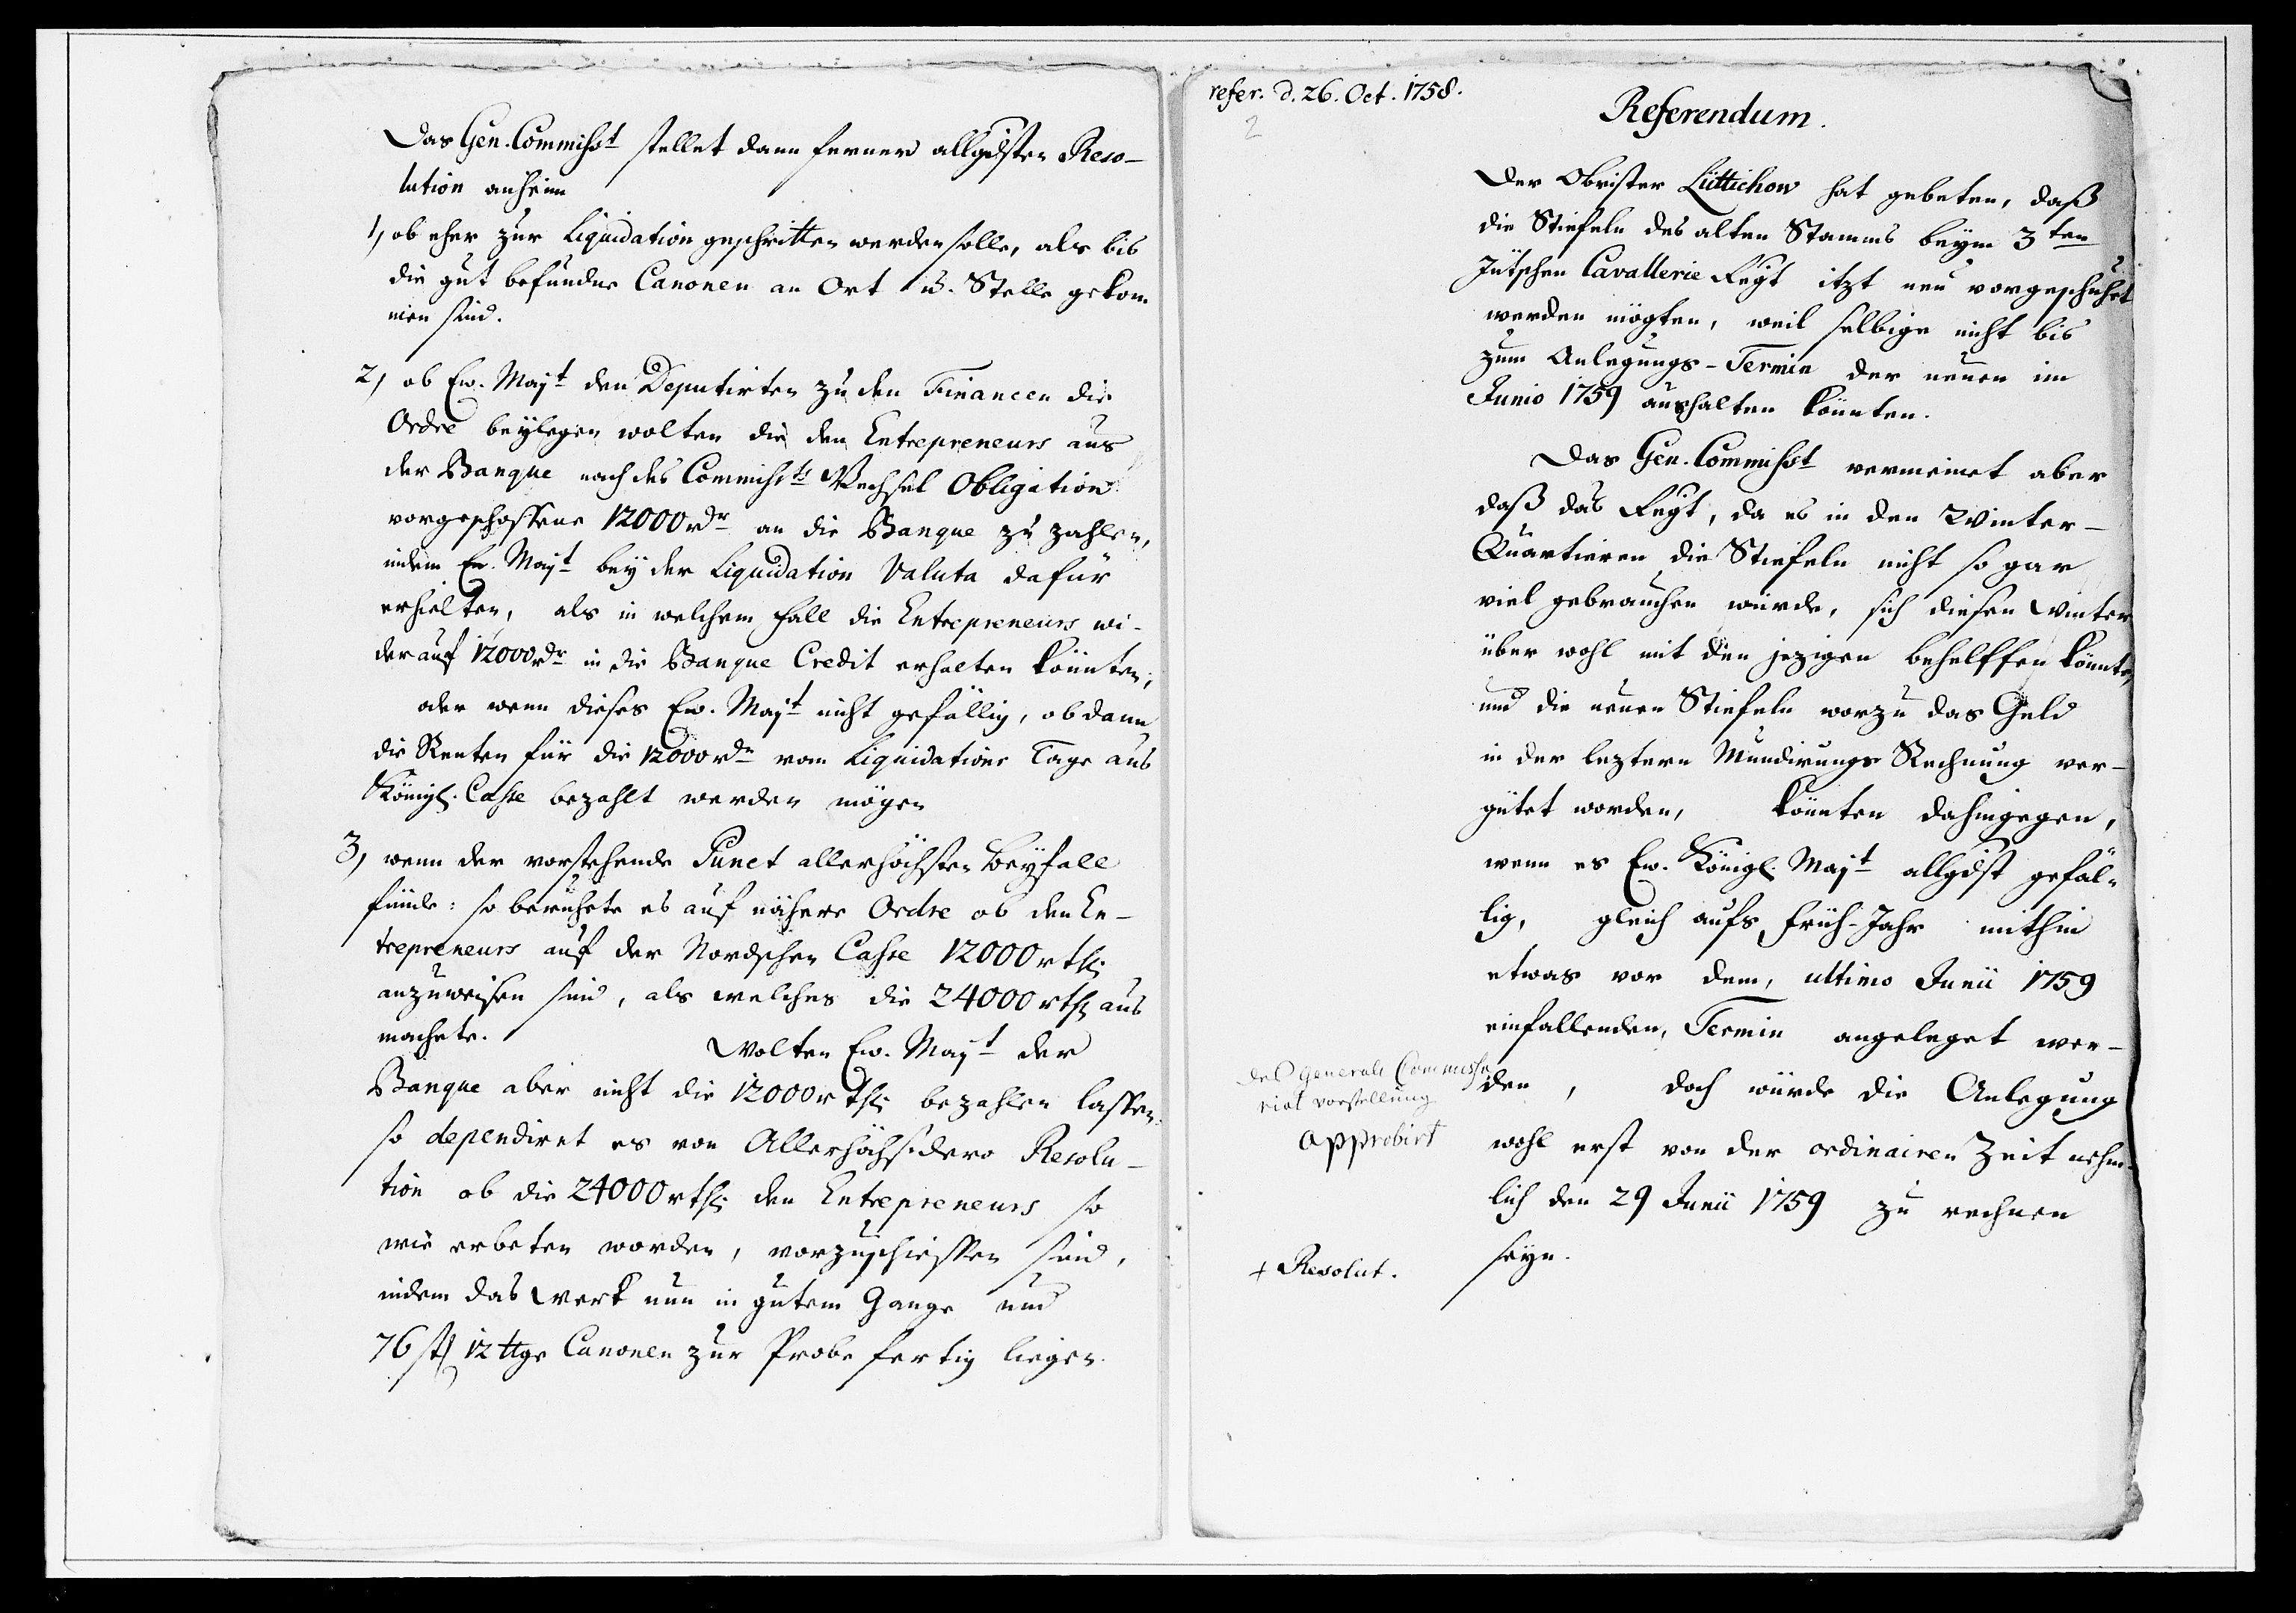 Das Gen. Commisst stellet dann ferner allgdster Reso-
lution anheim
1, ob eher zur Liquidation geschritten werden solle, als bis
die gut befundne Canonen an Ort u. Stelle gekom
men sind.
2, ob Ew. Majt den Deputirten zu den Financen die
Ordre beylegen wolten die den Entrepreneurs aus
der Banque nach des Commissts Wechsel Obligation
vorgeschossene 12000 rdr an die Banque zu zahlen,
indem Ew. Majt bey der Liquidation Valuta dafür
erhielten, als in welchem Fall die Entrepreneurs wi-
der auf 12000 rdr in die Banque Credit erhalten könnten,
oder wenn dieses Ew. Majt nicht gefällig, ob dann
die Renten für die 12000 rdr vom Liquidations Tage aus
Königl. Casse bezahlt werden mögen
3, wenn der vorstehende Punct allerhöchsten Beyfall
fünde: so beruhete es auf nähere Ordre ob den En-
trepreneurs auf der Nordschen Casse 12000 rthlr
anzuweisen sind, als welches die 24000 rthlr aus
machete. Wolten Ew. Majt der
Banque aber nicht die 12000 rthlr bezahlen lassen
so dependiret es von Allerhöchstdero Resolu-
tion ob die 24000 rthlr den Entrepreneurs so
wie erbeten worden, vorzuschiessen sind,
indem das Werk nun in gutem Gange und
76 st 12 ttge Canonen zur Probe fertig liegen.
refer. d. 26. Oct. 1758.
2
Referendum.
Der Obrister Lüttichow hat gebeten, daß
die Stiefeln des alten Stamms beym 3ten
Jütschen Cavallerie Regt itzt neu vorgeschuhet
werden mögten, weil selbige nicht bis
zum Anlegungs-Termin der neuen im
Junio 1759 aushalten könnten.
Das Gen. Commisst vermeinet aber
daß das Regt, da es in den Winter-
Quartieren die Stiefeln nicht so gar
viel gebrauchen würde, sich diesen Winter
über wohl mit den jezigen behelffen könnte,
und die neuen Stiefeln worzu das Geld
in der leztern Mundirungs Rechnung ver-
gütet worden, könnten dahingegen,
wenn es Ew. Königl. Majt allgdst gefäl-
lig, gleich aufs Früh-Jahr mithin
etwas vor dem, ultimo Junii 1759
einfallenden, Termin angeleget wer-
den, doch würde die Anlegung
wohl erst von der ordinairen Zeit nehm-
lich den 29 Junii 1759 zu rechnen
seyn.
des Generals Commissa
riat vorstellung
approbirt
+ Resolut.